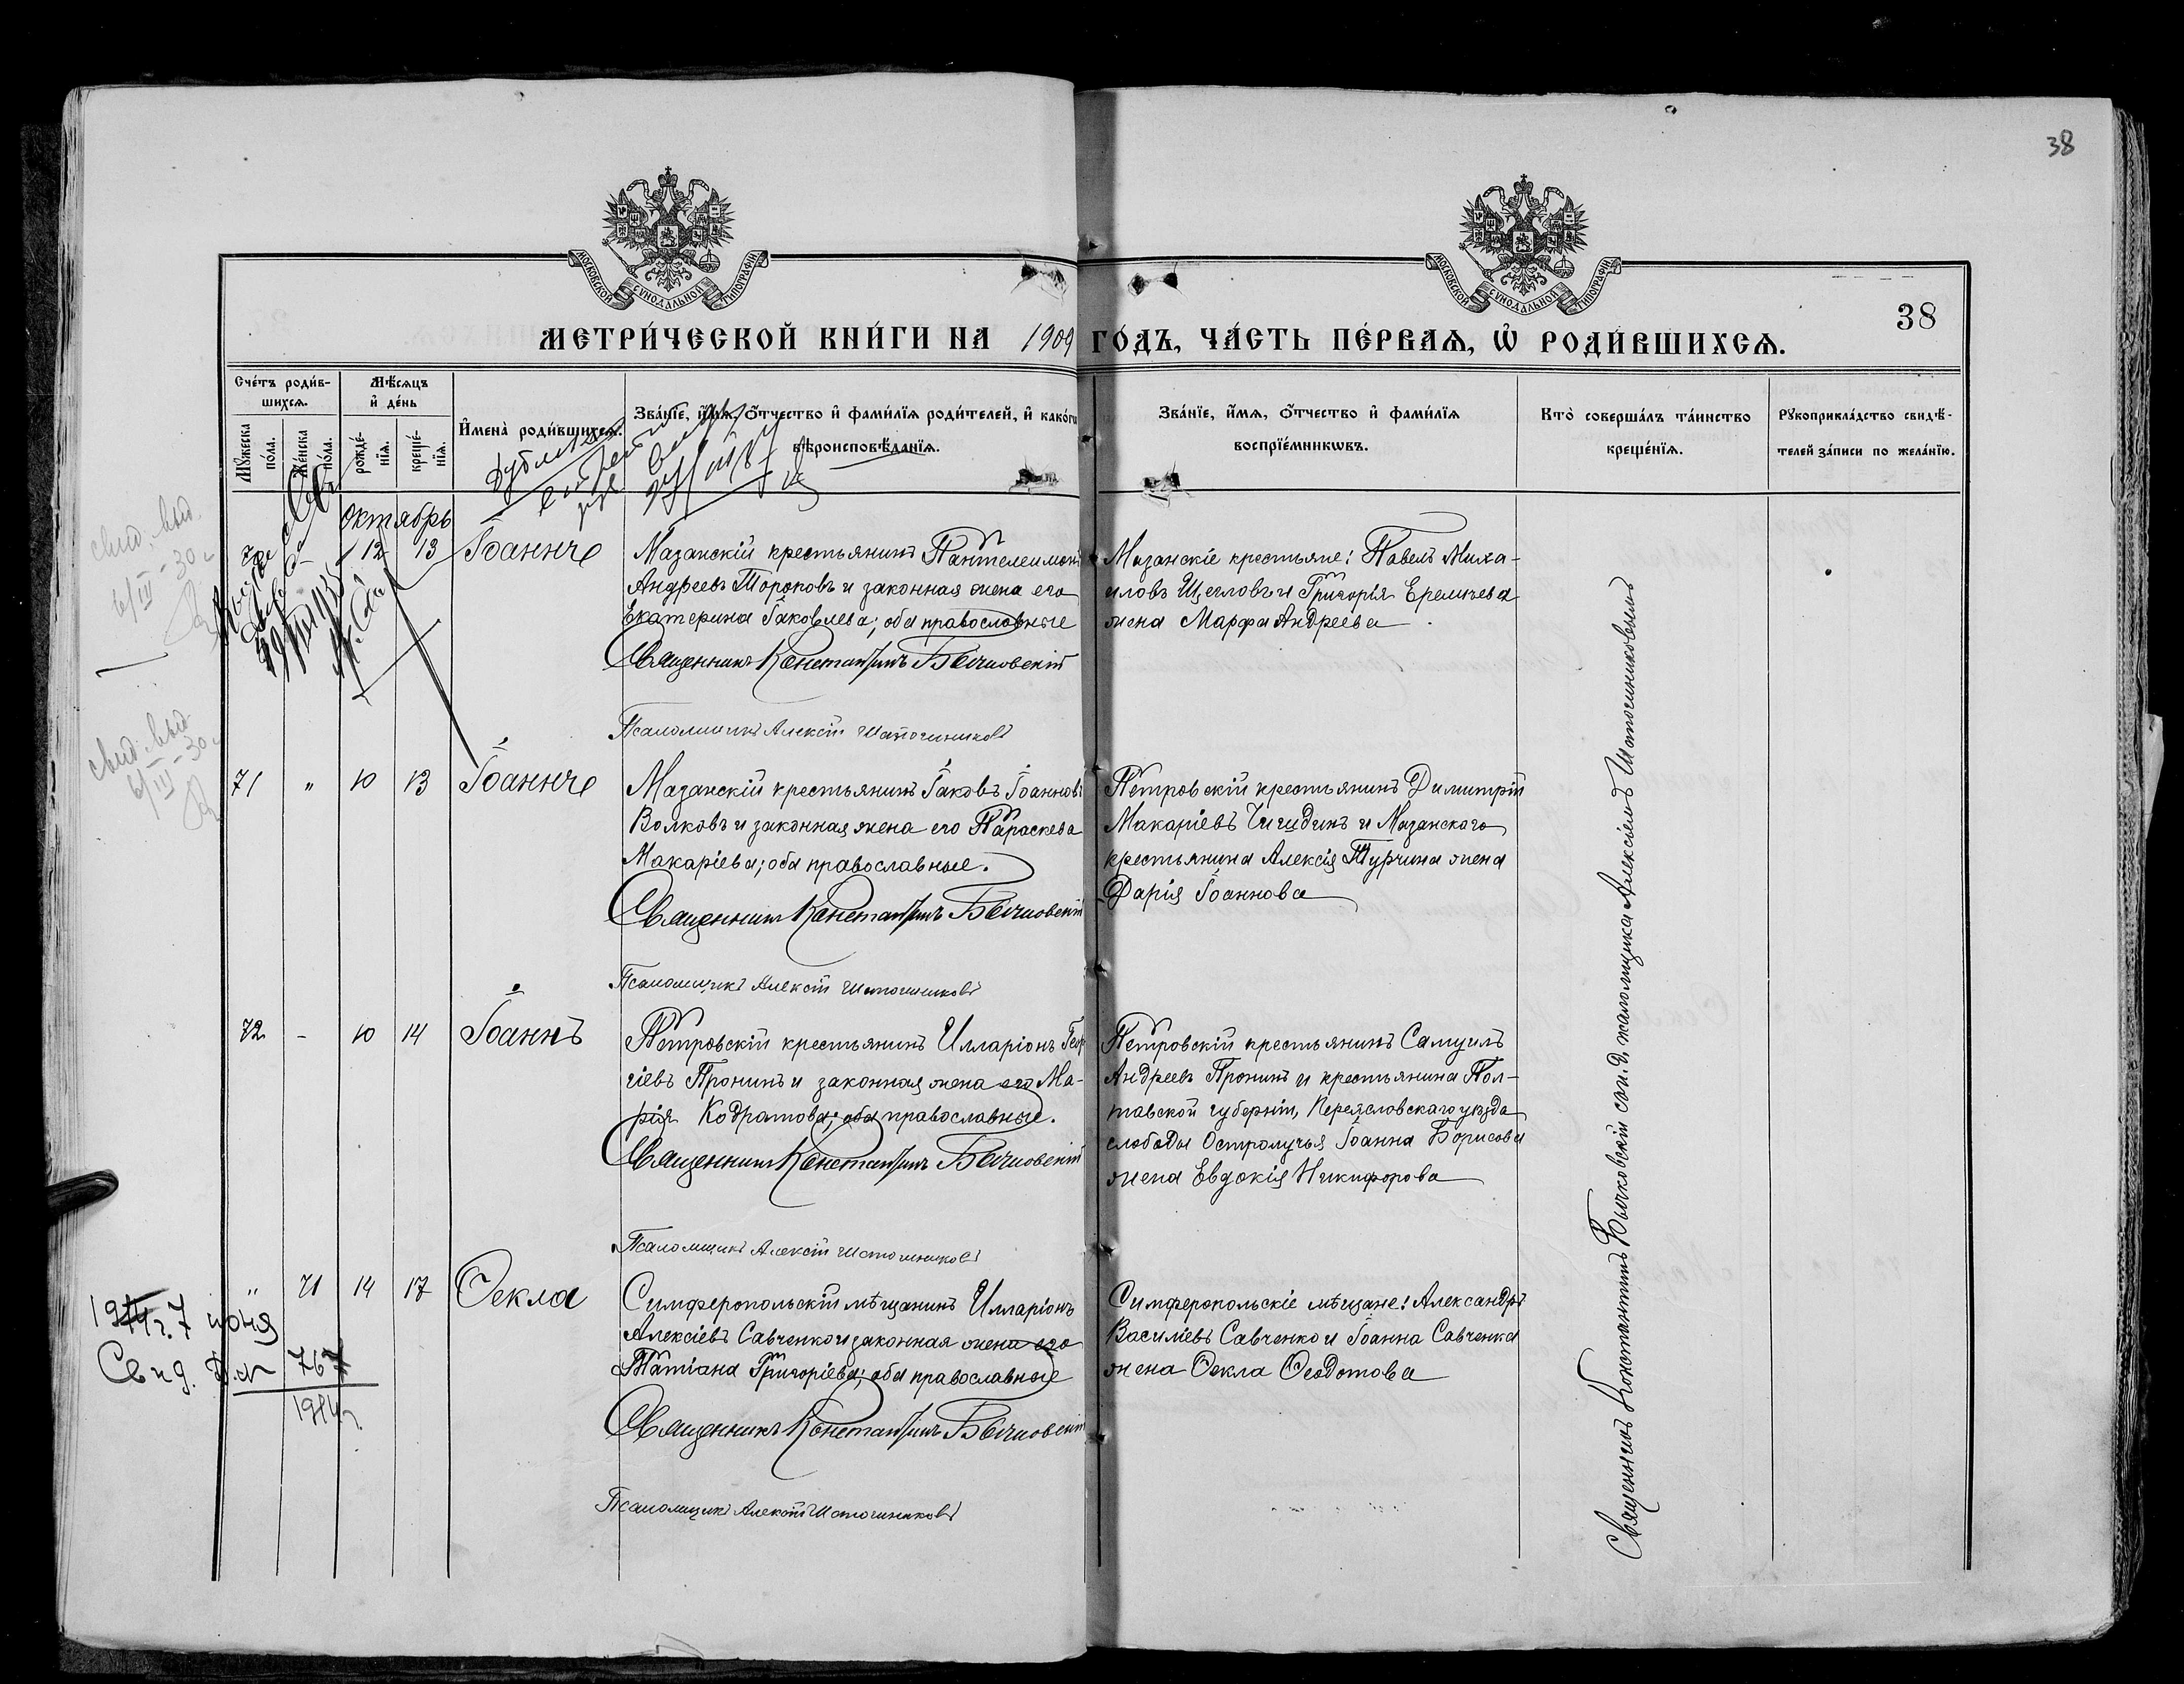 38
МОСКОВСКОЙ СѴНОДАЛЬНОЙ ТИПОГРАФІИ
МОСКОВСКОЙ СѴНОДАЛЬНОЙ ТИПОГРАФІИ
38
МЕТРИ́ЧЕСКОЙ КНИ́ГИ НА 1909 ГО́ДЪ, ЧА́СТЬ ПЕ́РВАѦ, Ѡ҆ РОДИ́ВШИХСѦ.
Сче́тъ роди́в-
шихсѧ.
Мѣ́сѧцъ
и҆ де́нь
Мꙋ́жеска
по́ла.
Же́нска
по́ла.
рожде́-
нїѧ.
креще́-
нїѧ.
И҆мена̀ роди́вшихсѧ.
Зва́нїе, и҆́мѧ, ѻ҆́тчество и҆ фами́лїѧ роди́телей, и҆ како́гѡ
вѣроисповѣ́данїѧ.
Зва́нїе, и҆́мѧ, ѻ҆́тчество и҆ фами́лїѧ
воспрїе́мникѡвъ.
Кто̀ соверша́лъ та́инство
креще́нїѧ.
Рꙋкоприкла́дство свидѣ́-
телей за́писи по жела́нїю.
Октябрь
70 12 13 Іоаннъ
Мазанскій крестьянинъ Пантелеимонъ
Андреевъ Тороповъ и законная жена его
Екатерина Іаковлева; оба православные
Священникъ Константинъ Бычковскій
Псаломщикъ Алексій Источниковъ
Мазанскіе крестьяне: Павелъ Миха-
иловъ Щегловъ и Григорія Еремѣева
жена Марфа Андреева
свид. выд.
6/III-30г
свид. выд.
6/III-30г
71 " 10 13 Іоаннъ
Мазанскій крестьянинъ Іаковъ Іоанновъ
Волковъ и законная жена его Параскева
Макаріева; оба православные.
Священникъ Константинъ Бычковскій
Псаломщикъ Алексій Источниковъ
Петровскій крестьянинъ Димитрій
Макаріевъ Чигидинъ и Мазанскаго
крестьянина Алексія Турчина жена
Дарія Іоаннова
72 - 10 14 Іоаннъ
Петровскій крестьянинъ Илларіонъ Геор-
гіевъ Пронинъ и законная жена его Ма-
рія Кодратова; оба православные.
Священникъ Константинъ Бычковскій
Псаломщикъ Алексій Источниковъ
Петровскій крестьянинъ Самуилъ
Андреевъ Пронинъ и крестьянина Пол-
тавской губерніи, Переясловскаго уѣзда
слободы Остролучья Іоанна Борисова
жена Евдокія Никифорова
" 71 14 17 Ѳекла
Симферопольскій мѣщанинъ Илларіонъ
Алексіевъ Савченко и законная жена его
Татіана Григоріева; оба православные
Священникъ Константинъ Бычковскій
Псаломщикъ Алексій Источниковъ
Симферопольскіе мѣщане: Александръ
Василіевъ Савченко и Іоанна Савченка
жена Ѳекла Ѳеодотова
1914г. 7 іюня
Свид. за № 767
1914г.
Священникъ Константинъ Бычковскій съ и. д. псаломщика Алексіемъ Источниковымъ